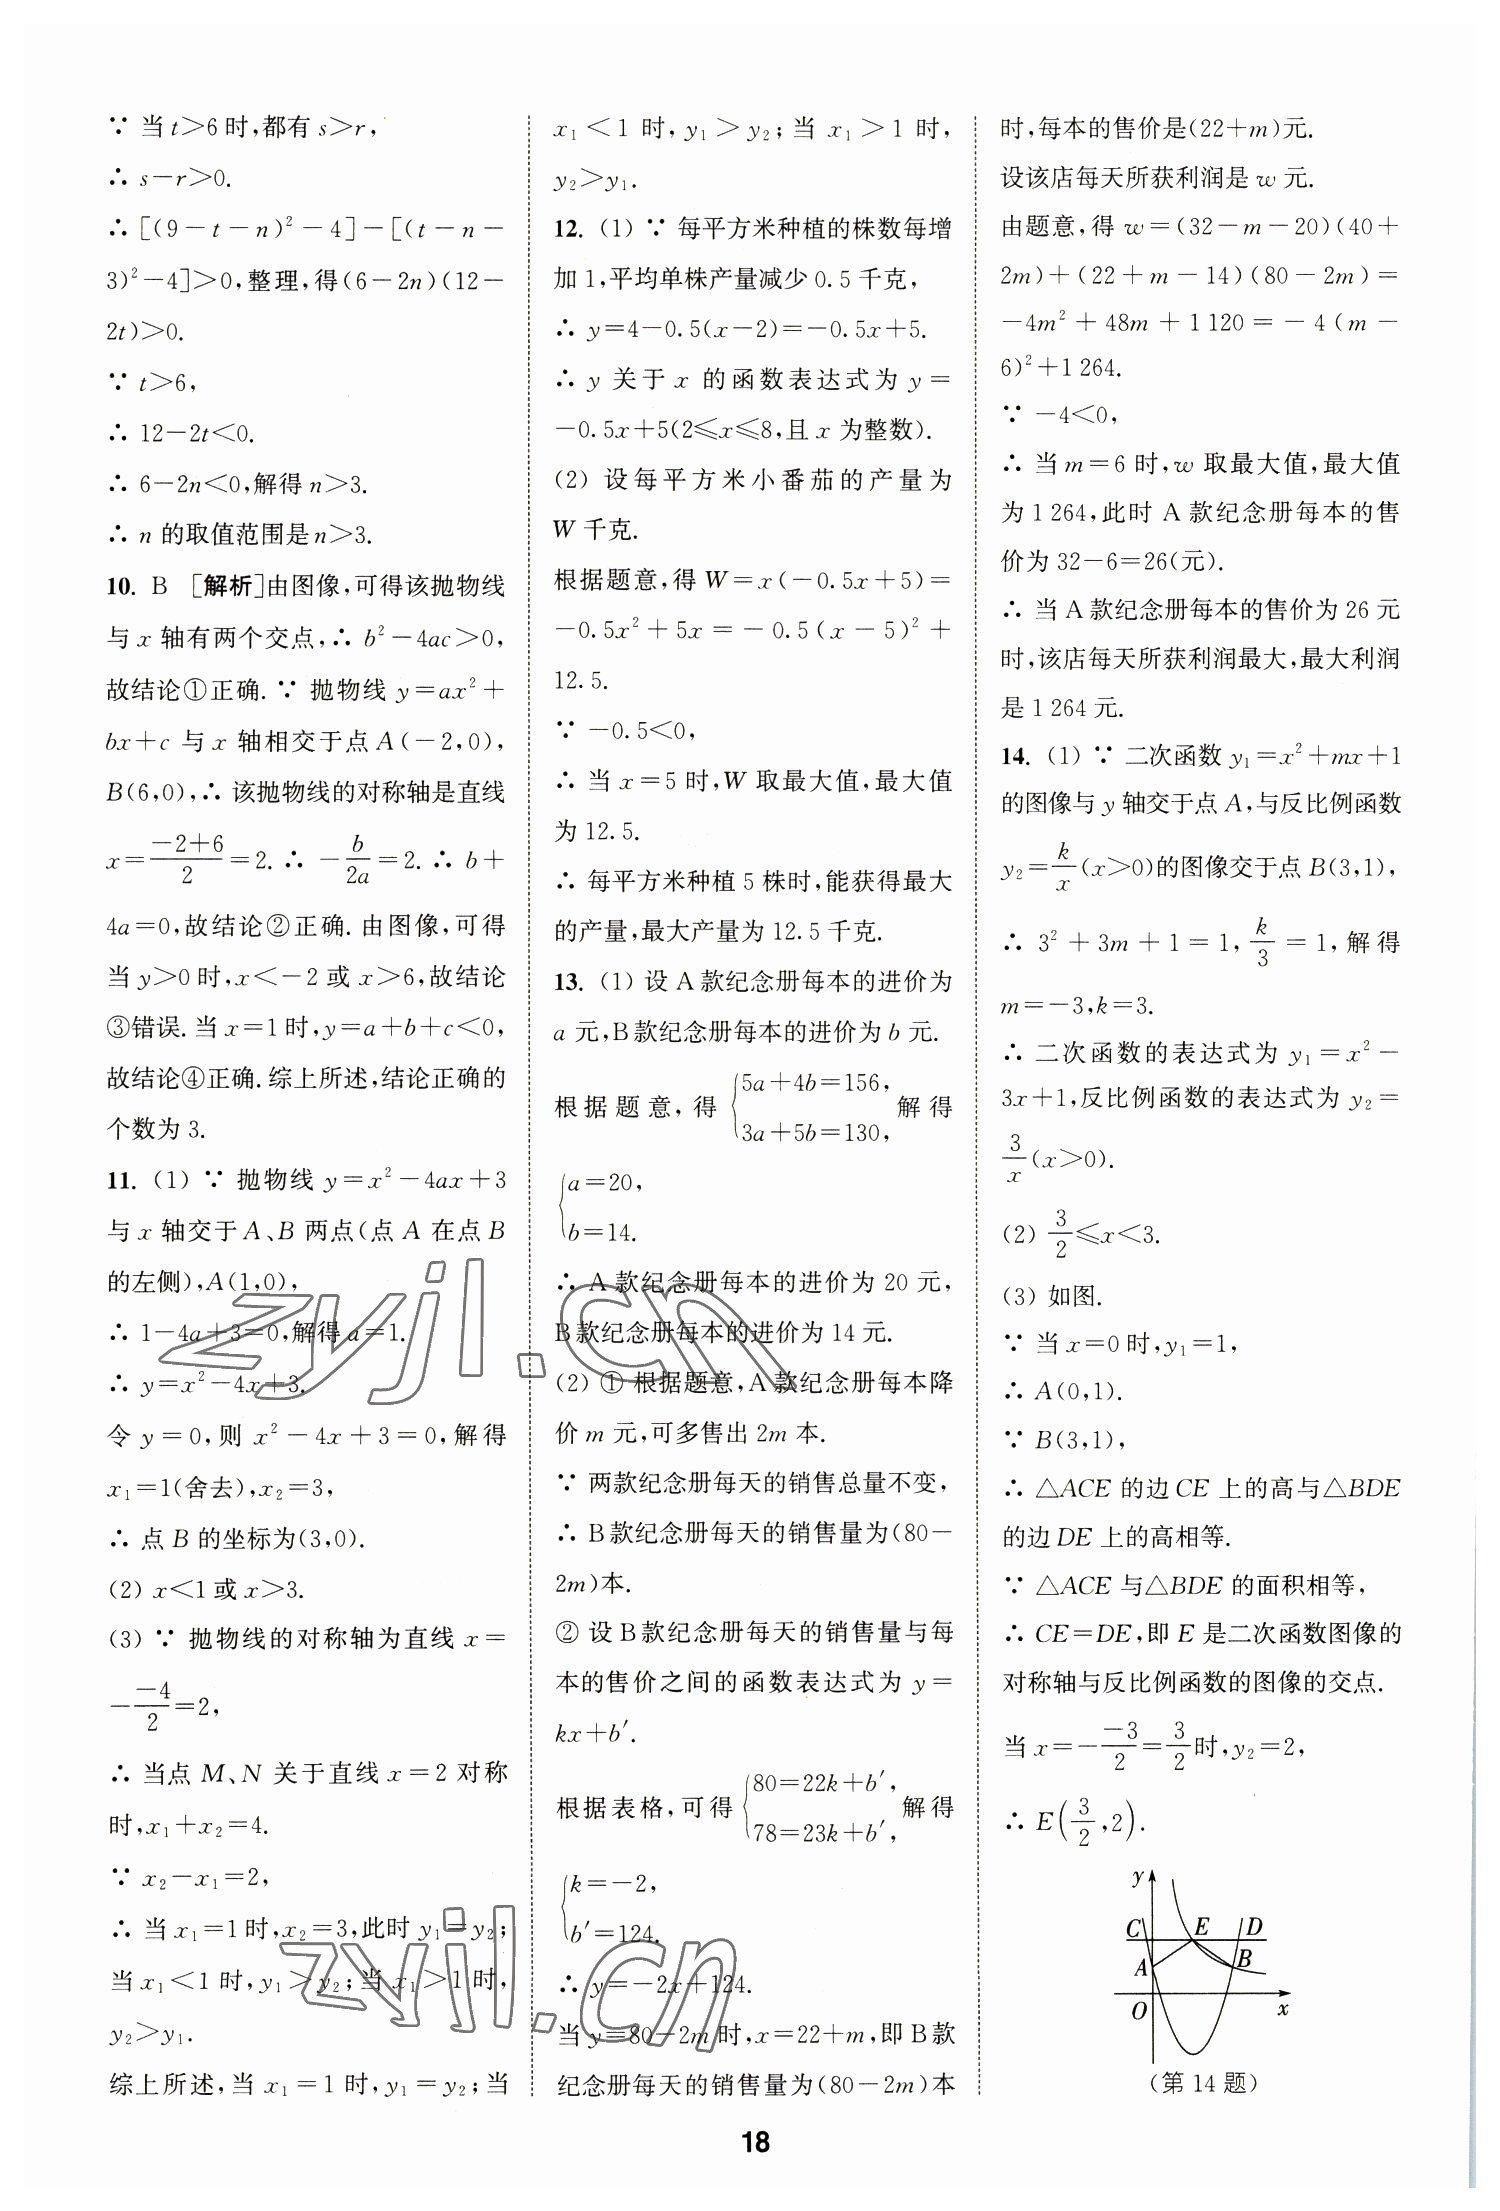 ∵ 当 t＞6 时,都有 s＞r,
∴ s－r＞0.
∴ [(9－t－n)²－4]－[(t－n－
3)²－4]＞0,整理,得(6－2n)(12－
2t)＞0.
∵ t＞6,
∴ 12－2t＜0.
∴ 6－2n＜0,解得 n＞3.
∴ n 的取值范围是 n＞3.
10. B [解析]由图像,可得该抛物线
与 x 轴有两个交点,∴ b²－4ac＞0,
故结论①正确. ∵ 抛物线 y＝ax²＋
bx＋c 与 x 轴相交于点 A(－2,0),
B(6,0),∴ 该抛物线的对称轴是直线
x＝(－2＋6)/2＝2. ∴ －b/2a＝2. ∴ b＋
4a＝0,故结论②正确. 由图像,可得
当 y＞0 时,x＜－2 或 x＞6,故结论
③错误. 当 x＝1 时,y＝a＋b＋c＜0,
故结论④正确. 综上所述,结论正确的
个数为 3.
11. (1) ∵ 抛物线 y＝x²－4ax＋3
与 x 轴交于 A、B 两点(点 A 在点 B
的左侧),A(1,0),
∴ 1－4a＋3＝0,解得 a＝1.
∴ y＝x²－4x＋3.
令 y＝0,则 x²－4x＋3＝0,解得
x₁＝1(舍去),x₂＝3,
∴ 点 B 的坐标为(3,0).
(2) x＜1 或 x＞3.
(3) ∵ 抛物线的对称轴为直线 x＝
－(－4)/2＝2,
∴ 当点 M、N 关于直线 x＝2 对称
时,x₁＋x₂＝4.
∵ x₂－x₁＝2,
∴ 当 x₁＝1 时,x₂＝3,此时 y₁＝y₂;
当 x₁＜1 时,y₁＞y₂;当 x₁＞1 时,
y₂＞y₁.
综上所述,当 x₁＝1 时,y₁＝y₂;当
x₁＜1 时,y₁＞y₂;当 x₁＞1 时,
y₂＞y₁.
12. (1) ∵ 每平方米种植的株数每增
加 1,平均单株产量减少 0.5 千克,
∴ y＝4－0.5(x－2)＝－0.5x＋5.
∴ y 关于 x 的函数表达式为 y＝
－0.5x＋5(2≤x≤8,且 x 为整数).
(2) 设每平方米小番茄的产量为
W 千克.
根据题意,得 W＝x(－0.5x＋5)＝
－0.5x²＋5x＝－0.5(x－5)²＋
12.5.
∵ －0.5＜0,
∴ 当 x＝5 时,W 取最大值,最大值
为 12.5.
∴ 每平方米种植 5 株时,能获得最大
的产量,最大产量为 12.5 千克.
13. (1) 设 A 款纪念册每本的进价为
a 元,B 款纪念册每本的进价为 b 元.
根据题意,得 {5a＋4b＝156, 3a＋5b＝130, 解得
{a＝20,
b＝14.
∴ A 款纪念册每本的进价为 20 元,
B 款纪念册每本的进价为 14 元.
(2) ① 根据题意,A 款纪念册每本降
价 m 元,可多售出 2m 本.
∵ 两款纪念册每天的销售总量不变,
∴ B 款纪念册每天的销售量为(80－
2m)本.
② 设 B 款纪念册每天的销售量与每
本的售价之间的函数表达式为 y＝
kx＋b′.
根据表格,可得 {80＝22k＋b′, 78＝23k＋b′, 解得
{k＝－2,
b′＝124.
∴ y＝－2x＋124.
当 y＝80－2m 时,x＝22＋m,即 B 款
纪念册每天的销售量为(80－2m)本
时,每本的售价是(22＋m)元.
设该店每天所获利润是 w 元.
由题意,得 w＝(32－m－20)(40＋
2m)＋(22＋m－14)(80－2m)＝
－4m²＋48m＋1 120＝－4(m－
6)²＋1 264.
∵ －4＜0,
∴ 当 m＝6 时,w 取最大值,最大值
为 1 264,此时 A 款纪念册每本的售
价为 32－6＝26(元).
∴ 当 A 款纪念册每本的售价为 26 元
时,该店每天所获利润最大,最大利润
是 1 264 元.
14. (1) ∵ 二次函数 y₁＝x²＋mx＋1
的图像与 y 轴交于点 A,与反比例函数
y₂＝k/x(x＞0)的图像交于点 B(3,1),
∴ 3²＋3m＋1＝1,k/3＝1,解得
m＝－3,k＝3.
∴ 二次函数的表达式为 y₁＝x²－
3x＋1,反比例函数的表达式为 y₂＝
3/x(x＞0).
(2) 3/2≤x＜3.
(3) 如图.
∵ 当 x＝0 时,y₁＝1,
∴ A(0,1).
∵ B(3,1),
∴ △ACE 的边 CE 上的高与△BDE
的边 DE 上的高相等.
∵ △ACE 与△BDE 的面积相等,
∴ CE＝DE,即 E 是二次函数图像的
对称轴与反比例函数的图像的交点.
当 x＝－(－3)/2＝3/2时,y₂＝2,
∴ E(3/2,2).
y
C E D
A B
O x
(第 14 题)
18
zyjl.cn
zyjl.cn